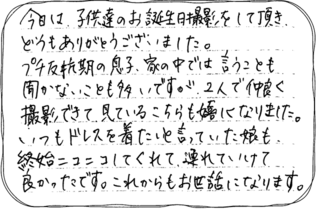 今日は、子供達のお誕生日撮影をして頂き
どうもありがとうございました。
プチ反抗期の息子、家の中では言うことも
聞かないことも多いですが、2人で仲良く
撮影できて、見ているこちらも嬉しくなりました。
いつもドレスを着たいと言っていた娘も、
終始ニコニコしてくれて、連れていけて
良かったです。これからもお世話になります。